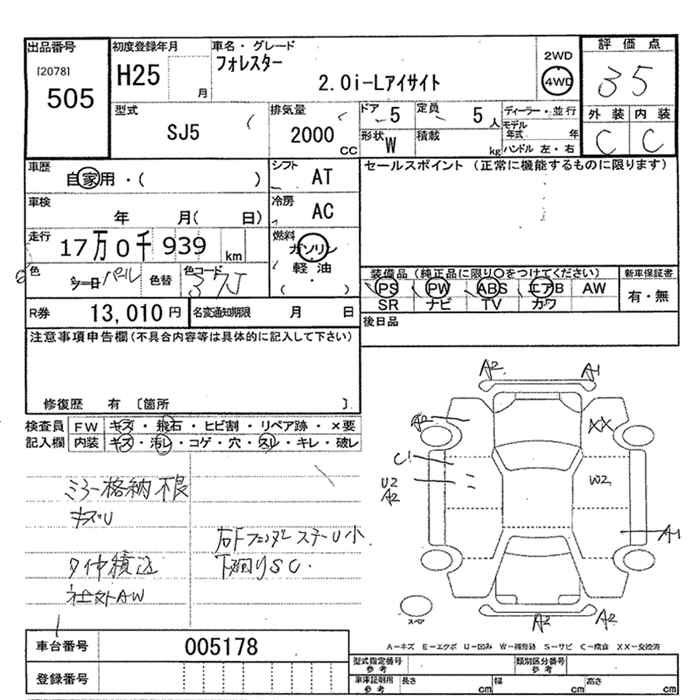 出品番号 初度登録年月 車名・グレード 評価点
[2078] H25 月 フォレスター 2WD 35
505 2.0i-Lアイサイト 4WD
型式 排気量 ドア 5 定員 5人 ディーラー・並行 外装 内装
SJ5 2000 CC 形状 W 積載 kg モデル年式 年 C C
ハンドル 左・右
車歴 シフト セールスポイント (正常に機能するものに限ります)
自家用・( ) AT
車検 冷房
年 月( 日) AC
走行 17万0千939 km 燃料 ガソリン
軽油
( )
色 パール 色替 色コード 37J 装備品(純正品に限り○をつけてください) 新車保証書
PS PW ABS エアB AW 有・無
SR ナビ TV カワ
R券 13,010円 名変通知期限 月 日 後日品
注意事項申告欄(不具合内容等は具体的に記入して下さい)
修復歴 有 〔箇所 〕
検査員 FW キズ・飛石・ヒビ割・リペア跡・×要
記入欄 内装 キズ・汚レ・コゲ・穴・スレ・キレ・破レ
A2 A1
A2 XX
C1
U2 W2
A2
A1
ミラー格納不良
キズU
右Fフェンダーステー U小
下廻りSC.
タイヤ積込
社外AW
スペア
A2 A2
A=キズ E=エクボ U=凹み W=補修跡 S=サビ C=腐食 XX=交換済
車台番号 005178
型式指定番号 参考 類別区分番号 参考
登録番号 車庫証明用 参考 長さ cm 幅 cm 高さ cm